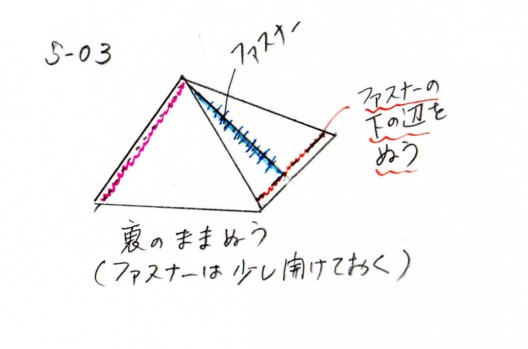 S-03
ファスナー
ファスナーの
下の辺を
ぬう
裏のままぬう
(ファスナーは少し開けておく)